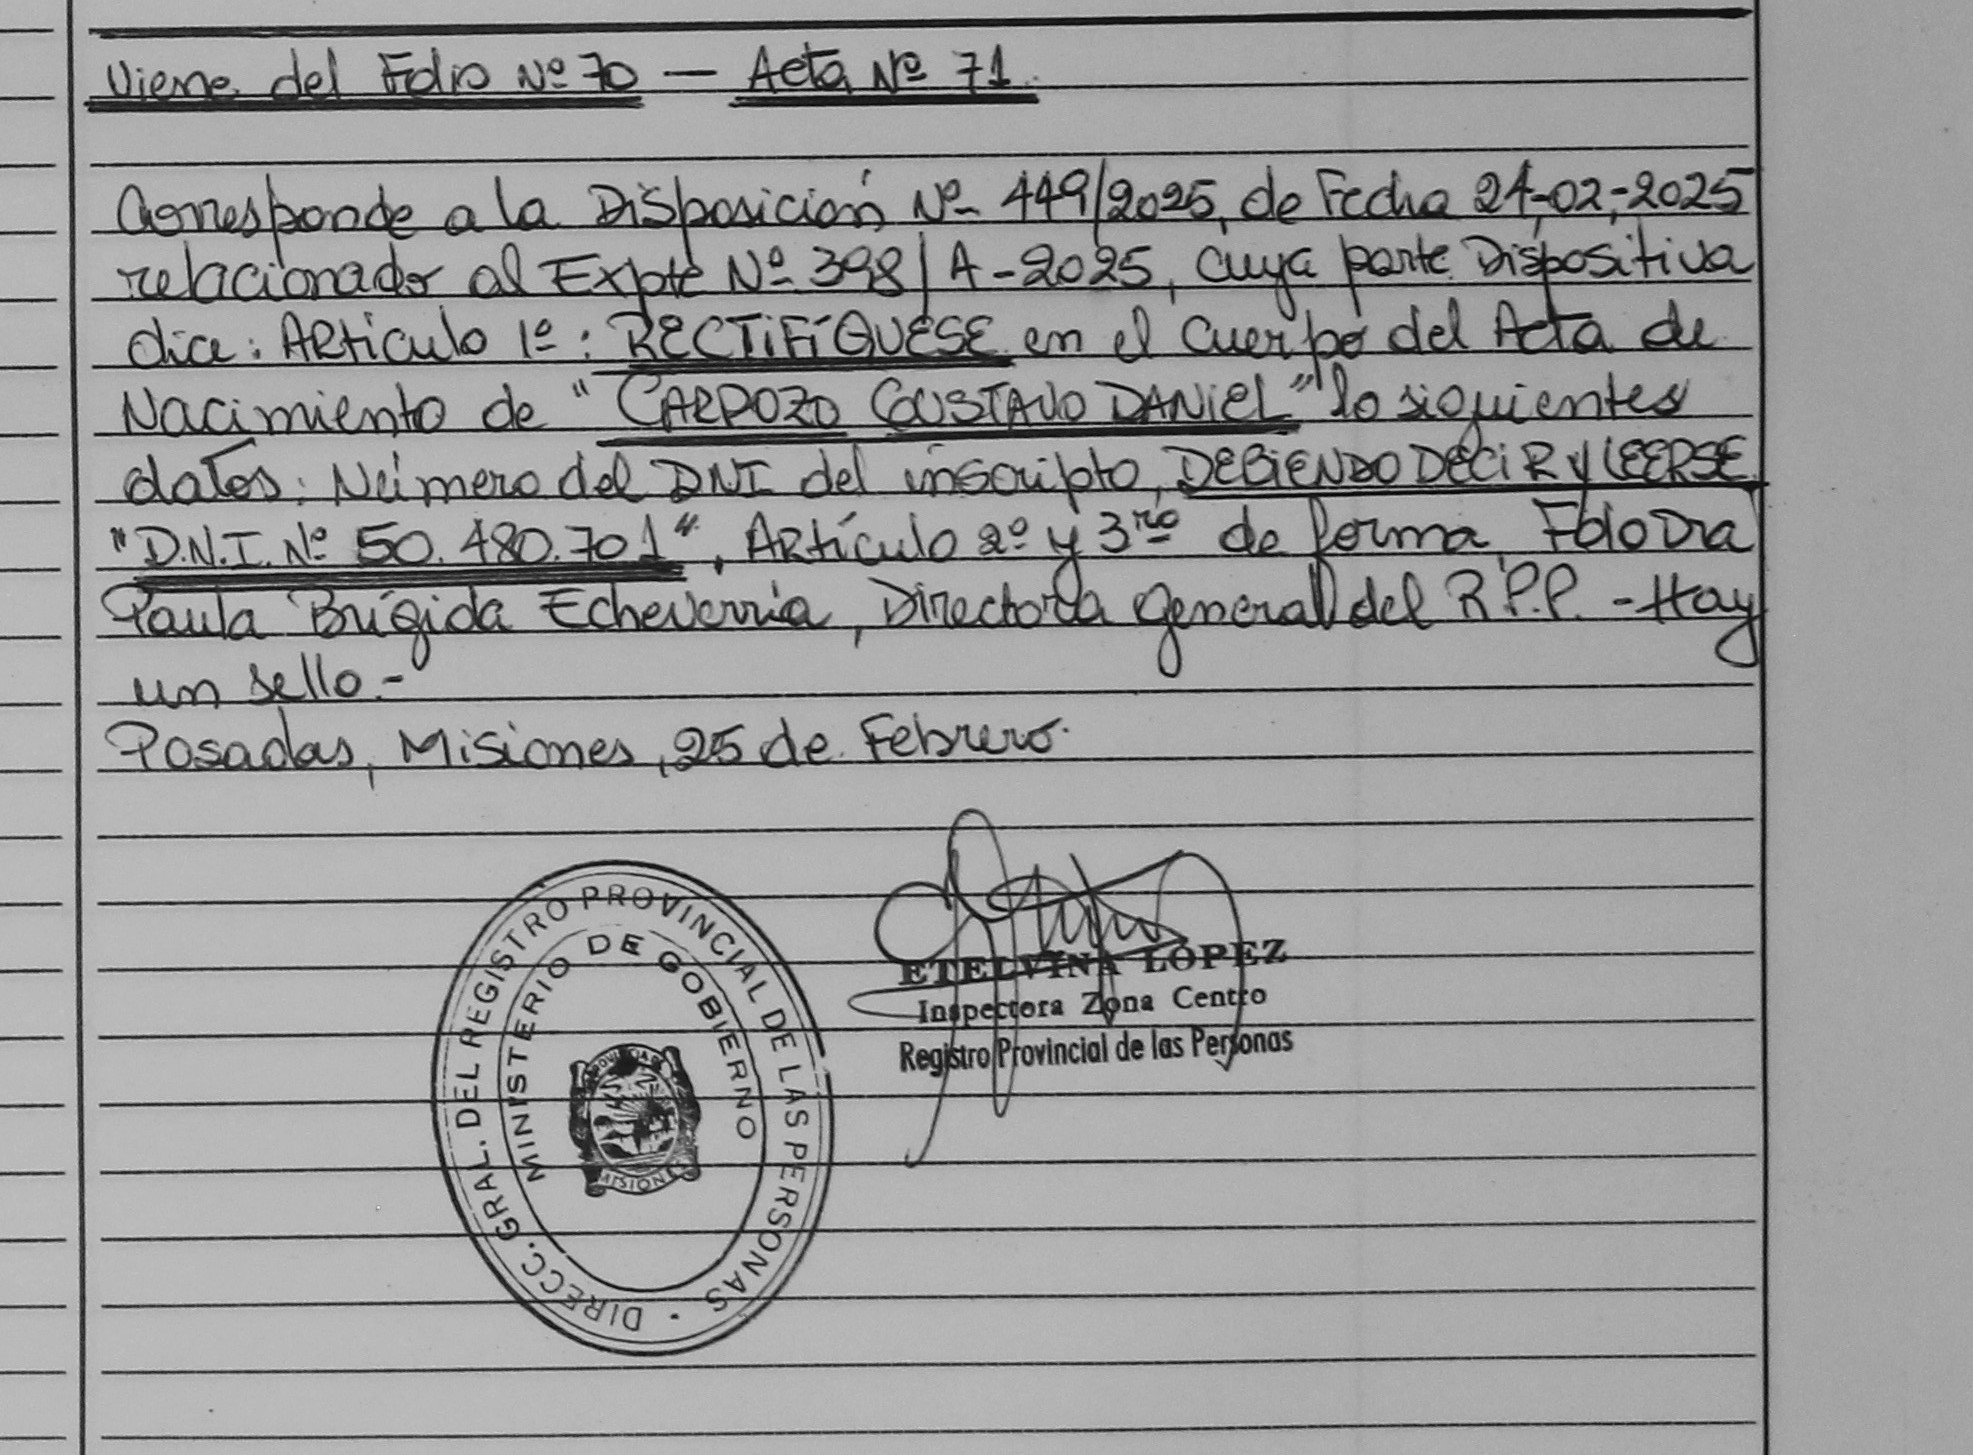 Viene del Folio Nº 70 — Acta Nº 71.
Corresponde a la Disposición Nº 449/2025, de Fecha 24-02-2025
relacionado al Expte Nº 398/A-2025, cuya parte Dispositiva
dice: Artículo 1º: RECTIFÍQUESE en el Cuerpo del Acta de
Nacimiento de "CARDOZO GUSTAVO DANIEL" lo siguientes
datos: Número del DNI del inscripto, DEBIENDO DECIR Y LEERSE
"D.N.I. Nº 50.480.701", Artículo 2º y 3ro de forma, Fdo Dra
Paula Brígida Echeverria, Directora General del R.P.P. - Hay
un sello.-
Posadas, Misiones, 25 de Febrero.
DIRECC. GRAL. DEL REGISTRO PROVINCIAL DE LAS PERSONAS
MINISTERIO DE GOBIERNO
MISIONES
ETELVINA LOPEZ
Inspectora Zona Centro
Registro Provincial de las Personas